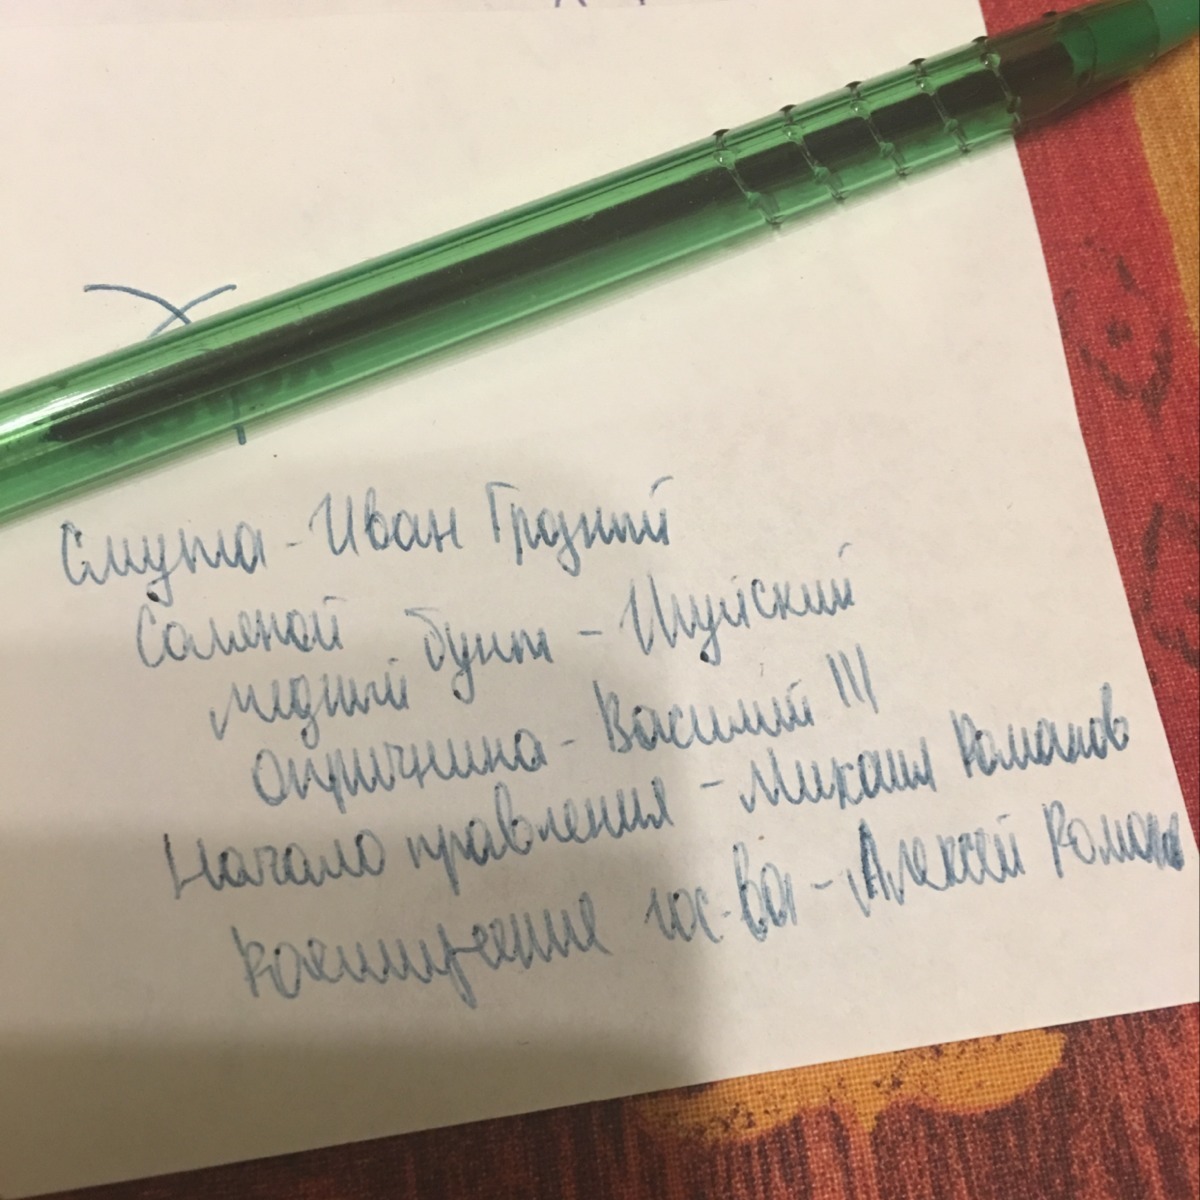 Смута - Иван Грозный
Соляной бунт - Шуйский
медный
опричнина - Василий III
Начало правления - Михаил Романов
Расширение гос-ва - Алексей Романов